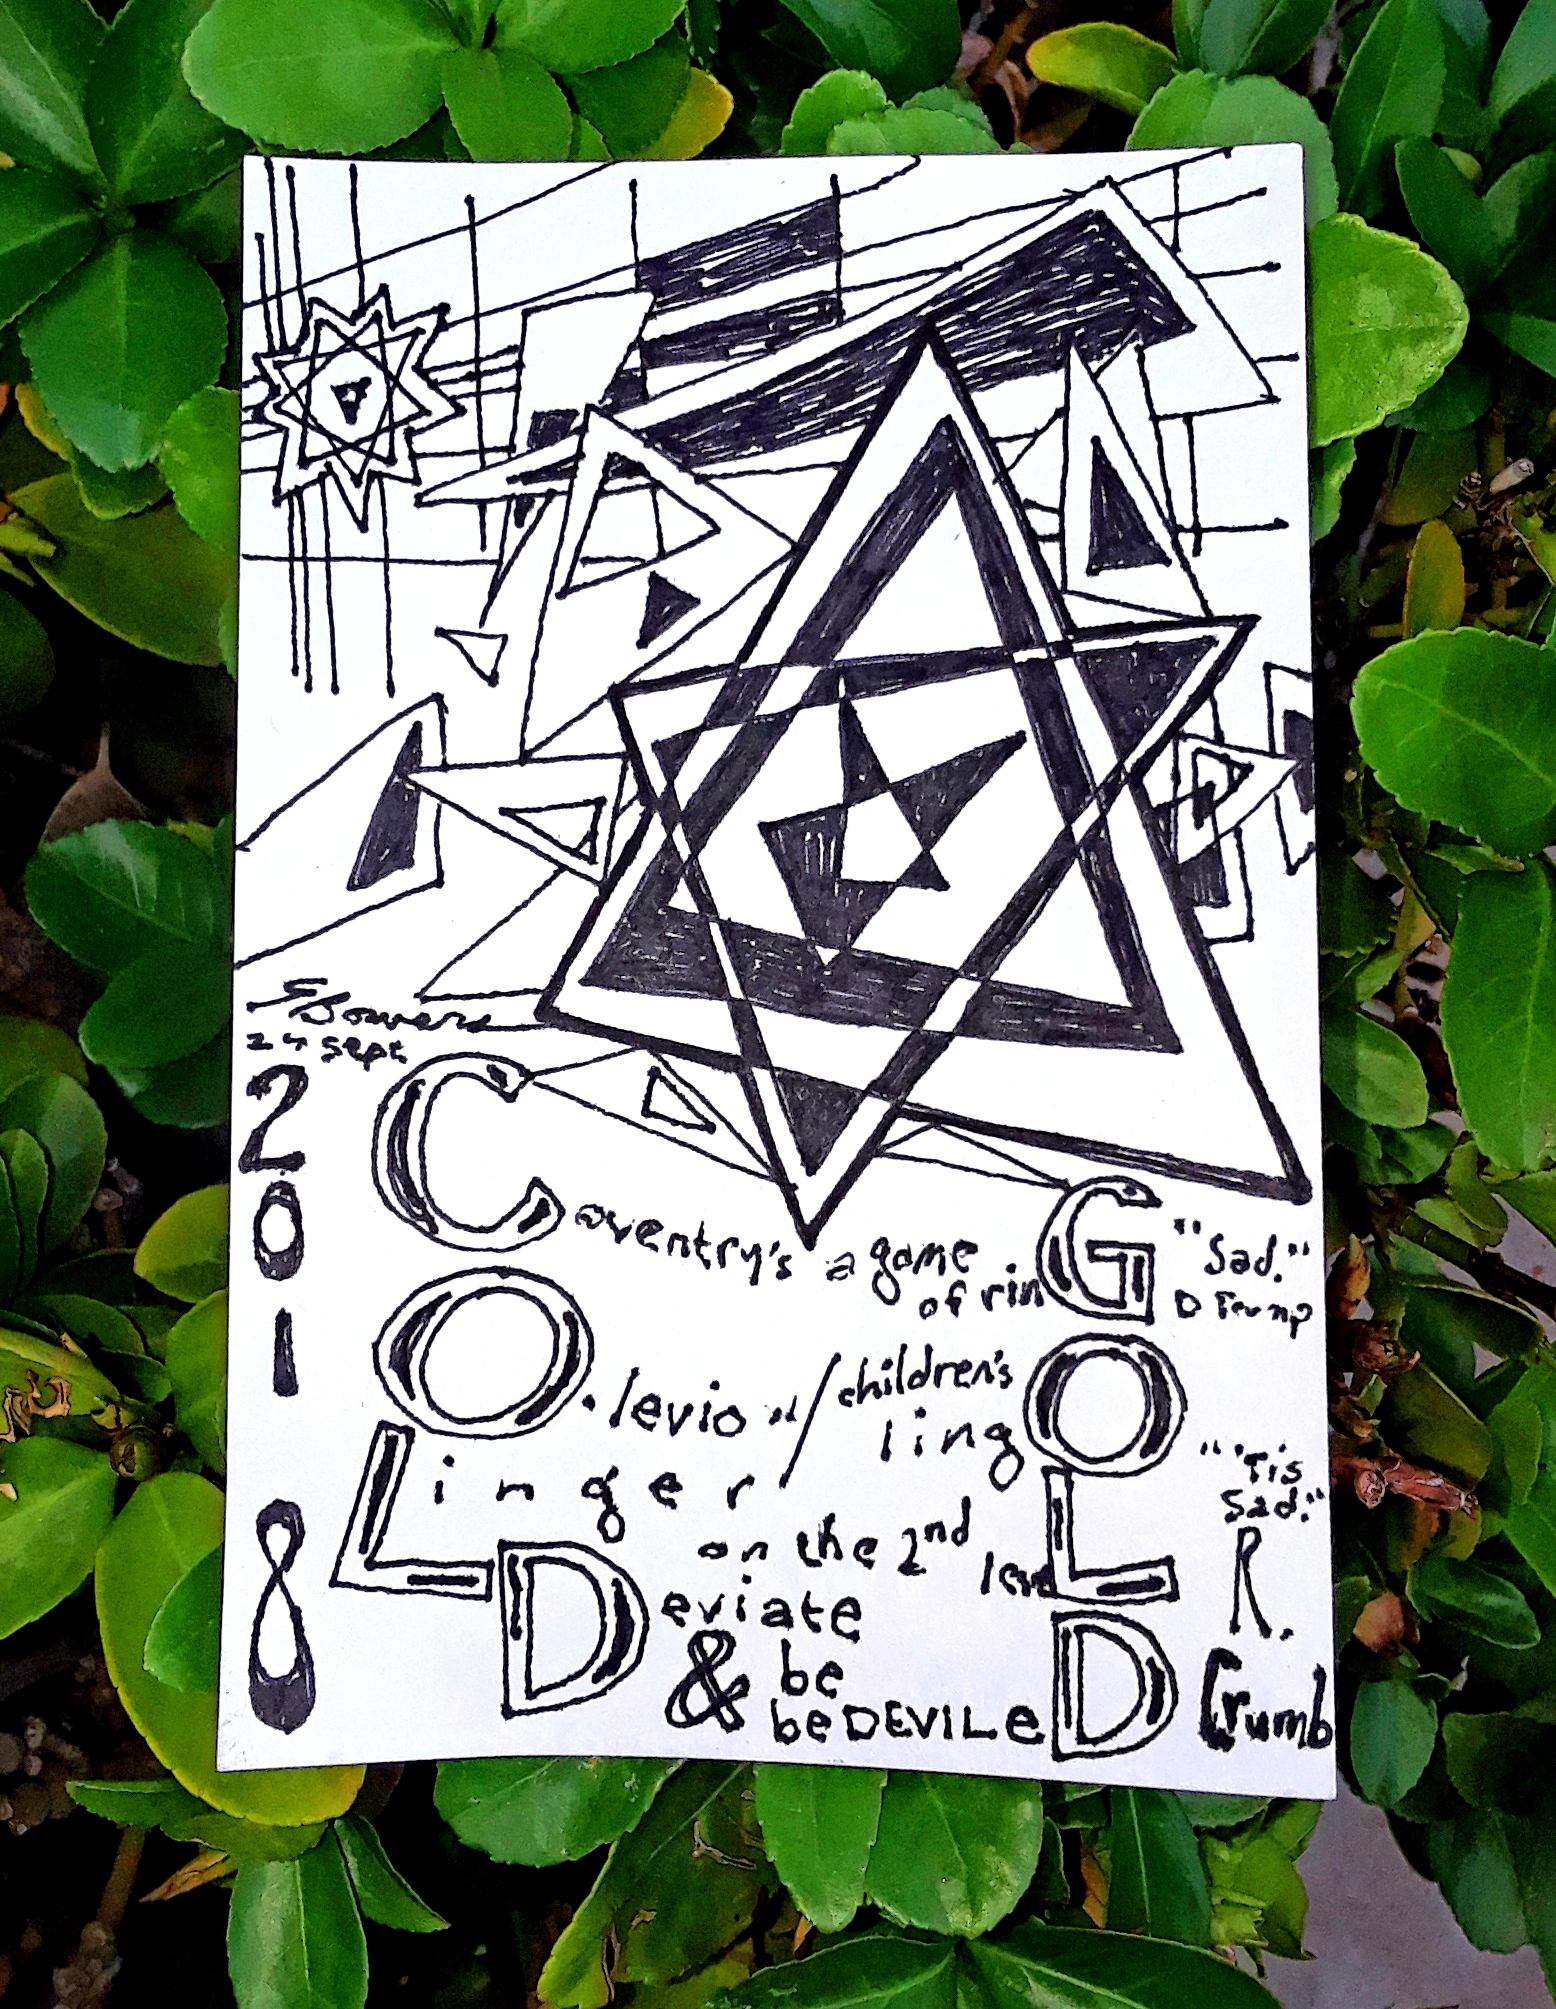 SBowers
24 Sept
2018
Coventry's a game
of rinG
"Sad."
D Trump
O.levio "/children's
lingO
Linger/
on the 2nd
leveL
"'Tis
Sad."
R.
Crumb
Deviate
& be
beDEVILeD